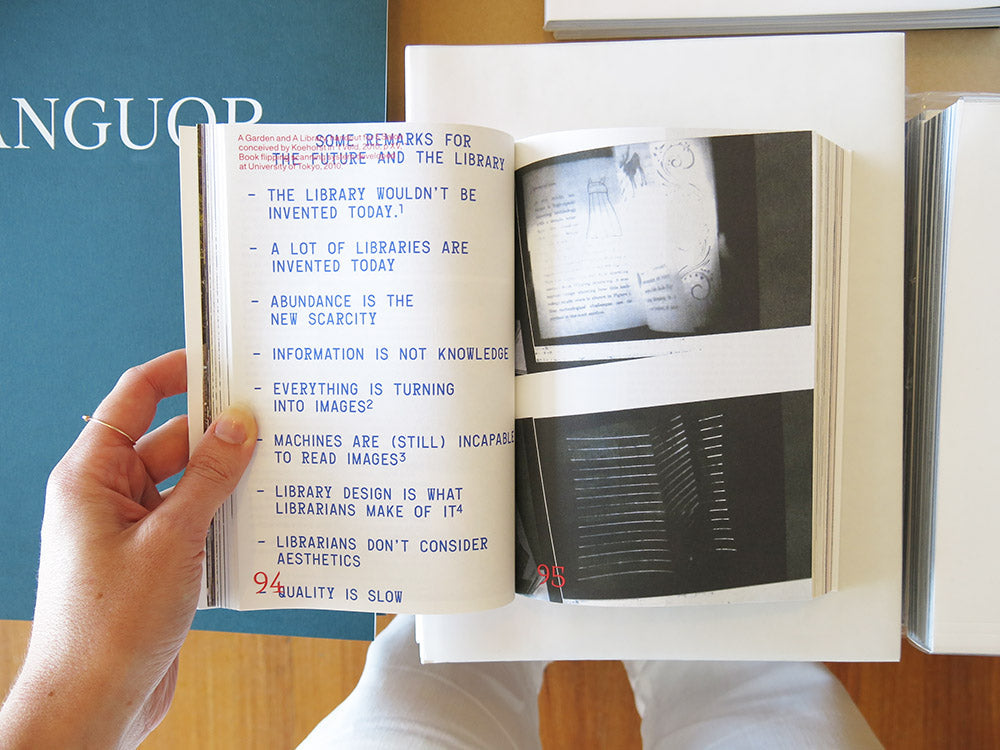 ANGUOR
A Garden and A Library
conceived by Koehorst in 't Veld, 2010, p.XV.
Book flipping scanning
at University of Tokyo, 2010.
SOME REMARKS FOR
THE FUTURE AND THE LIBRARY
- THE LIBRARY WOULDN'T BE
INVENTED TODAY.¹
- A LOT OF LIBRARIES ARE
INVENTED TODAY
- ABUNDANCE IS THE
NEW SCARCITY
- INFORMATION IS NOT KNOWLEDGE
- EVERYTHING IS TURNING
INTO IMAGES²
- MACHINES ARE (STILL) INCAPABLE
TO READ IMAGES³
- LIBRARY DESIGN IS WHAT
LIBRARIANS MAKE OF IT⁴
- LIBRARIANS DON'T CONSIDER
AESTHETICS
- QUALITY IS SLOW
94
95